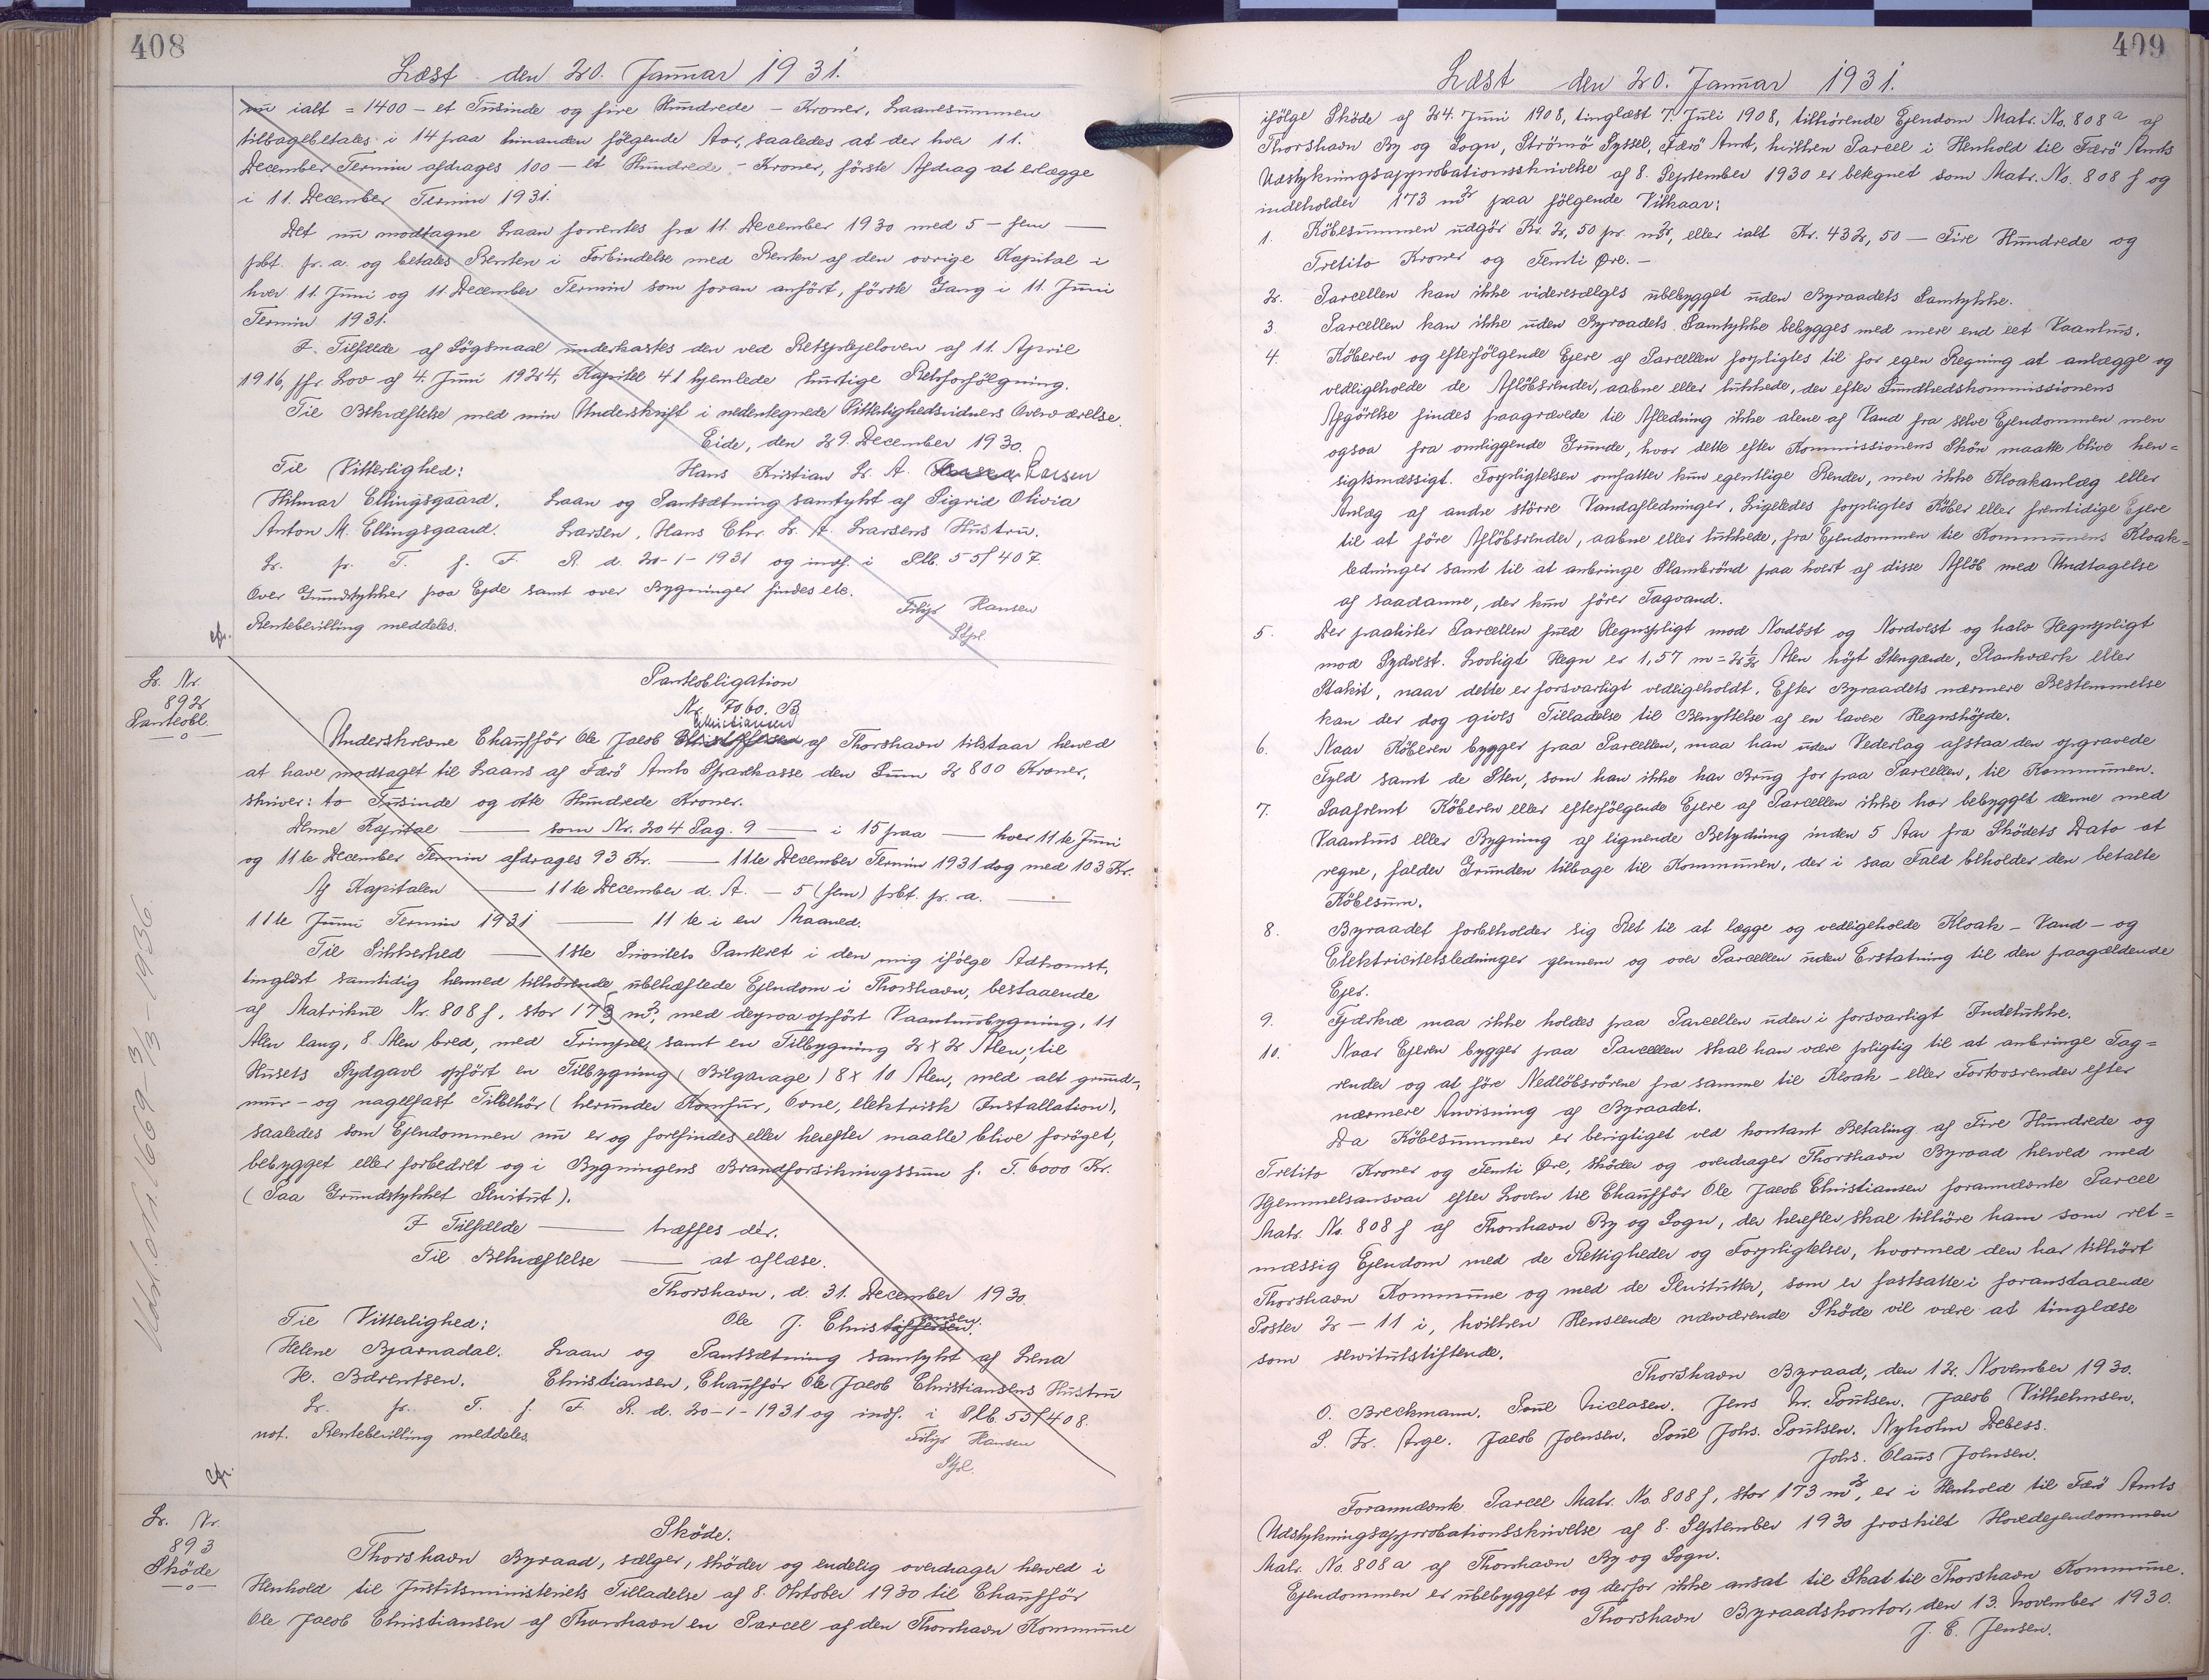 408
Læst den 20. Januar 1931.
nu ialt = 1400 - et Tusinde og fire Hundrede - Kroner, Laanesummen
tilbagebetales i 14 paa hinanden følgende Aar, saaledes at der hver 11.
December Termin afdrages 100 - et Hundrede - Kroner, første Afdrag at erlægge
i 11. December Termin 1931.
Det nu modtagne Laan forrentes fra 11. December 1930 med 5 - fem -
pCt. pr. a. og betales Renten i Forbindelse med Renten af den øvrige Kapital i
hver 11. Juni og 11. December Termin som foran anført, første Gang i 11. Juni
Termin 1931.
I Tilfælde af Søgsmaal underkastes den ved Retsplejeloven af 11. April
1916, jfr. Lov af 4. Juni 1924, Kapitel 41 hjemlede hurtige Retsforfølgning.
Til Bekræftelse med min Underskrift i nedentegnede Vitterlighedsvidners Overværelse.
Eide, den 29. December 1930.
Til Vitterlighed: Hans Kristian Lr. A. Larsen
Hilmar Ellingsgaard. Laan og Pantsætning samtykt af Sigrid Olivia
Anton M. Ellingsgaard. Larsen, Hans Chr. Lr. A. Larsens Hustru.
Lr. pr. T. f. F. R. d. 20-1-1931 og indf. i Plb. 55/407.
Over Grundstykker paa Ejde samt over Bygninger findes etc.
Rentebevilling meddeles. Filip Hansen
Stfl.
cfr.
Lr. Nr.
892
Panteobl.
Panteobligation
Nr. 7060. B
Christiansen
Underskrevne Chauffør Ole Jacob Christoffersen af Thorshavn tilstaar herved
at have modtaget til Laans af Færø Amts Sparekasse den Sum 2800 Kroner,
skriver: to Tusinde og otte Hundrede Kroner.
Denne Kapital — som Nr. 204 Pag. 9 — i 15 paa — hver 11te Juni
og 11te December Termin afdrages 93 Kr. — 11te December Termin 1931 dog med 103 Kr.
Af Kapitalen — 11te December d. A. — 5 (fem) pCt. pr. a. —
11te Juni Termin 1931 — 11te i en Maaned.
Til Sikkerhed — 1ste Prioritets Panteret i den mig ifølge Adkomst,
tinglæst samtidig hermed tilhørende ubehæftede Ejendom i Thorshavn, bestaaende
af Matrikul Nr. 808 f, stor 173 m², med derpaa opført Vaanhusbygning, 11
Alen lang, 8 Alen bred, med Trimpel, samt en Tilbygning 2 x 2 Alen; til
Husets Sydgavl opført en Tilbygning (Bilgarage) 8 x 10 Alen, med alt grund-,
mur- og nagelfast Tilbehør (herunder Komfur, Ovne, elektrisk Installation),
saaledes som Ejendommen nu er og forefindes eller herefter maatte blive forøget,
bebygget eller forbedret og i Bygningens Brandforsikringssum f. T. 6000 Kr.
(Paa Grundstykket Servitut).
I Tilfælde — træffes dér.
Til Bekræftelse — at aflæse.
Thorshavn, d. 31. December 1930.
Til Vitterlighed: Ole J. Christiansen.
Helene Bjarnadal. Laan og Pantsætning samtykt af Lena
H. Bærentsen. Christiansen, Chauffør Ole Jacob Christiansens Hustru
Lr. pr. T. f. F. R. d. 20-1-1931 og indf. i Plb. 55/408.
not. Rentebevilling meddeles. Filip Hansen
Stfl.
cfr.
Lr. Nr.
893
Skøde
Skøde.
Thorshavn Byraad, sælger, skøder og endelig overdrager herved i
Henhold til Justitsministeriets Tilladelse af 8. Oktober 1930 til Chauffør
Ole Jacob Christiansen af Thorshavn en Parcel af den Thorshavn Kommune
409
Læst den 20. Januar 1931.
ifølge Skøde af 24. Juni 1908, tinglæst 7. Juli 1908, tilhørende Ejendom Matr. No. 808 a af
Thorshavn By og Sogn, Strømø Syssel, Færø Amt, hvilken Parcel i Henhold til Færø Amts
Udstykningsapprobationsskrivelse af 8. September 1930 er betegnet som Matr. No. 808 f og
indeholder 173 m² paa følgende Vilkaar:
1. Købesummen udgør Kr. 2,50 pr. m², eller ialt Kr. 432,50 — Fire Hundrede og
Tretito Kroner og Femti Øre. —
2. Parcellen kan ikke videresælges ubebygget uden Byraadets Samtykke.
3. Parcellen kan ikke uden Byraadets Samtykke bebygges med mere end eet Vaanhus.
4. Køberen og efterfølgende Ejere af Parcellen forpligtes til for egen Regning at anlægge og
vedligeholde de Afløbsrender, aabne eller lukkede, der efter Sundhedskommissionens
Afgørelse findes paagrævede til Afledning ikke alene af Vand fra selve Ejendommen men
ogsaa fra omliggende Grunde, hvor dette efter Kommissionens Skøn maatte blive hen-
sigtsmæssigt. Forpligtelsen omfatter kun egentlige Render, men ikke Kloakanlæg eller
Anlæg af andre større Vandafledninger. Ligeledes forpligtes Køber eller fremtidige Ejere
til at føre Afløbsrender, aabne eller lukkede, fra Ejendommen til Kommunens Kloak-
ledninger samt til at anbringe Slambrønd paa hvert af disse Afløb med Undtagelse
af saadanne, der kun fører Tagvand.
5. Der paahviler Parcellen fuld Hegnspligt mod Nordøst og Nordvest og halv Hegnspligt
mod Sydvest. Lovligt Hegn er 1,57 m = 2½ Alen højt Stengærde, Plankværk eller
Stakit, naar dette er forsvarligt vedligeholdt. Efter Byraadets nærmere Bestemmelse
kan der dog gives Tilladelse til Benyttelse af en lavere Hegnshøjde.
6. Naar Køberen bygger paa Parcellen, maa han uden Vederlag afstaa den opgravede
Fyld samt de Sten, som han ikke har Brug for paa Parcellen, til Kommunen.
7. Saafremt Køberen eller efterfølgende Ejere af Parcellen ikke har bebygget denne med
Vaanhus eller Bygning af lignende Betydning inden 5 Aar fra Skødets Dato at
regne, falder Grunden tilbage til Kommunen, der i saa Fald beholder den betalte
Købesum.
8. Byraadet forbeholder sig Ret til at lægge og vedligeholde Kloak- Vand- og
Elektricitetsledninger gennem og over Parcellen uden Erstatning til den paagældende
Ejer.
9. Fjærkræ maa ikke holdes paa Parcellen uden i forsvarligt Indelukke.
10. Naar Ejeren bygger paa Parcellen skal han være pligtig til at anbringe Tag-
render og at føre Nedløbsrørene fra samme til Kloak- eller Fortovsrender efter
nærmere Anvisning af Byraadet.
Da Købesummen er berigtiget ved kontant Betaling af Fire Hundrede og
Tretito Kroner og Femti Øre, skøder og overdrager Thorshavn Byraad herved med
Hjemmelsansvar efter Loven til Chauffør Ole Jacob Christiansen forannævnte Parcel
Matr. No. 808 f af Thorshavn By og Sogn, der herefter skal tilhøre ham som ret-
mæssig Ejendom med de Rettigheder og Forpligtelser, hvormed den har tilhørt
Thorshavn Kommune og med de Servitutter, som er fastsatte i foranstaaende
Poster 2 - 11 i, hvilken Henseende nærværende Skøde vil være at tinglæse
som servitutstiftende.
Thorshavn Byraad, den 12. November 1930.
O. Breckmann. Poul Niclasen. Jens Chr. Poulsen. Jacob Vilhelmsen.
S. Fr. Arge. Jacob Joensen. Poul Johs. Poulsen. Nyholm Debess.
Johs. Olaus Joensen.
Forannævnte Parcel Matr. No. 808 f, stor 173 m², er i Henhold til Færø Amts
Udstykningsapprobationsskrivelse af 8. September 1930 fraskilt Hovedejendommen
Matr. No. 808 a af Thorshavn By og Sogn.
Ejendommen er ubebygget og derfor ikke ansat til Skat til Thorshavn Kommune.
Thorshavn Byraadskontor, den 13. November 1930.
J. C. Jensen.